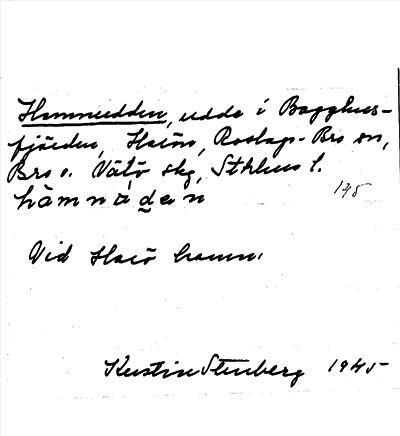 Hamnudden, udde i Bagghus-
fjärden, Harö, Roslags-Bro sn,
Bro o. Vätö skg, Sthlms l.
hàmnúden 195
Vid Harö hamn.
Kerstin Stenberg 1945